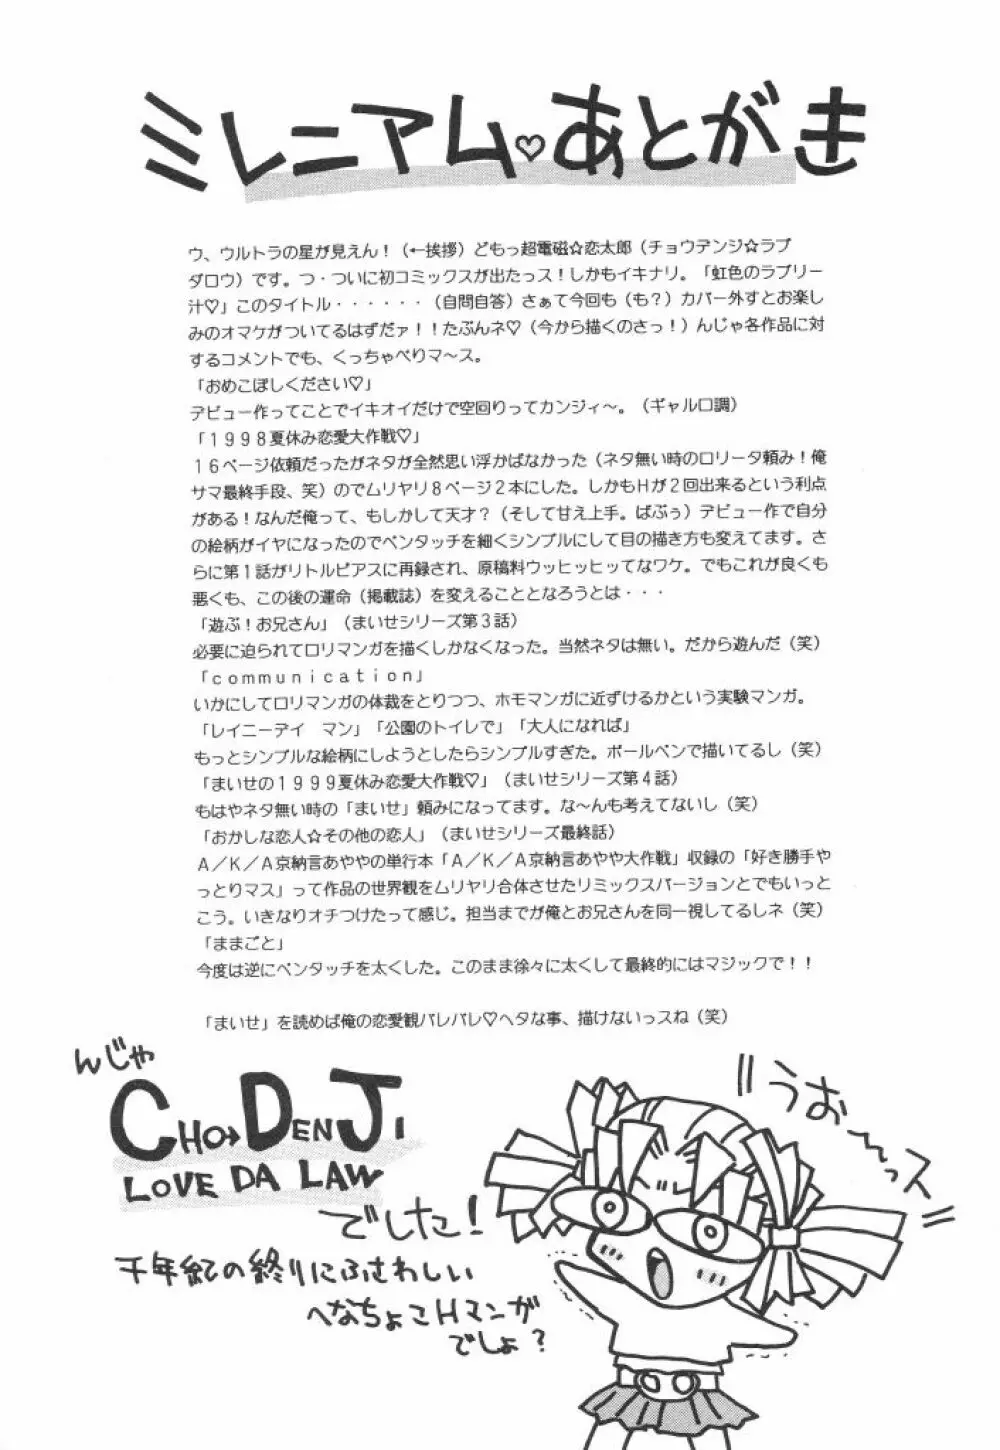 ミレニアム♡あとがき
ウ、ウルトラの星が見えん！（←挨拶）どもっ超電磁☆恋太郎（チョウデンジ☆ラブ
ダロウ）です。つ・ついに初コミックスが出たっス！しかもイキナリ。「虹色のラブリー
汁♡」このタイトル・・・・・・（自問自答）さぁて今回も（も？）カバー外すとお楽し
みのオマケがついてるはずだァ！！たぶんネ♡（今から描くのさっ！）んじゃ各作品に対
するコメントでも、くっちゃべりマ～ス。
「おめこぼしください♡」
デビュー作ってことでイキオイだけで空回りってカンジィ～。（ギャル口調）
「１９９８夏休み恋愛大作戦♡」
１６ページ依頼だったがネタが全然思い浮かばなかった（ネタ無い時のロリータ頼み！俺
サマ最終手段、笑）のでムリヤリ８ページ２本にした。しかもＨが２回出来るという利点
がある！なんだ俺って、もしかして天才？（そして甘え上手。ばぶぅ）デビュー作で自分
の絵柄がイヤになったのでペンタッチを細くシンプルにして目の描き方も変えてます。さ
らに第１話がリトルピアスに再録され、原稿料ウッヒッヒッてなワケ。でもこれが良くも
悪くも、この後の運命（掲載誌）を変えることとなろうとは・・・
「遊ぶ！お兄さん」（まいせシリーズ第３話）
必要に迫られてロリマンガを描くしかなくなった。当然ネタは無い。だから遊んだ（笑）
「ｃｏｍｍｕｎｉｃａｔｉｏｎ」
いかにしてロリマンガの体裁をとりつつ、ホモマンガに近ずけるかという実験マンガ。
「レイニーデイ　マン」「公園のトイレで」「大人になれば」
もっとシンプルな絵柄にしようとしたらシンプルすぎた。ボールペンで描いてるし（笑）
「まいせの１９９９夏休み恋愛大作戦♡」（まいせシリーズ第４話）
もはやネタ無い時の「まいせ」頼みになってます。な～んも考えてないし（笑）
「おかしな恋人☆その他の恋人」（まいせシリーズ最終話）
Ａ／Ｋ／Ａ京納言あややの単行本「Ａ／Ｋ／Ａ京納言あやや大作戦」収録の「好き勝手や
っとりマス」って作品の世界観をムリヤリ合体させたリミックスバージョンとでもいっと
こう。いきなりオチつけたって感じ。担当までが俺とお兄さんを同一視してるしネ（笑）
「ままごと」
今度は逆にペンタッチを太くした。このまま徐々に太くして最終的にはマジックで！！
「まいせ」を読めば俺の恋愛観バレバレ♡ヘタな事、描けないっスね（笑）
んじゃ
CHO→DENJI
LOVE DA LAW
でした！
千年紀の終りにふさわしい
へなちょこHマンガ
でしょ？
うお〜っス